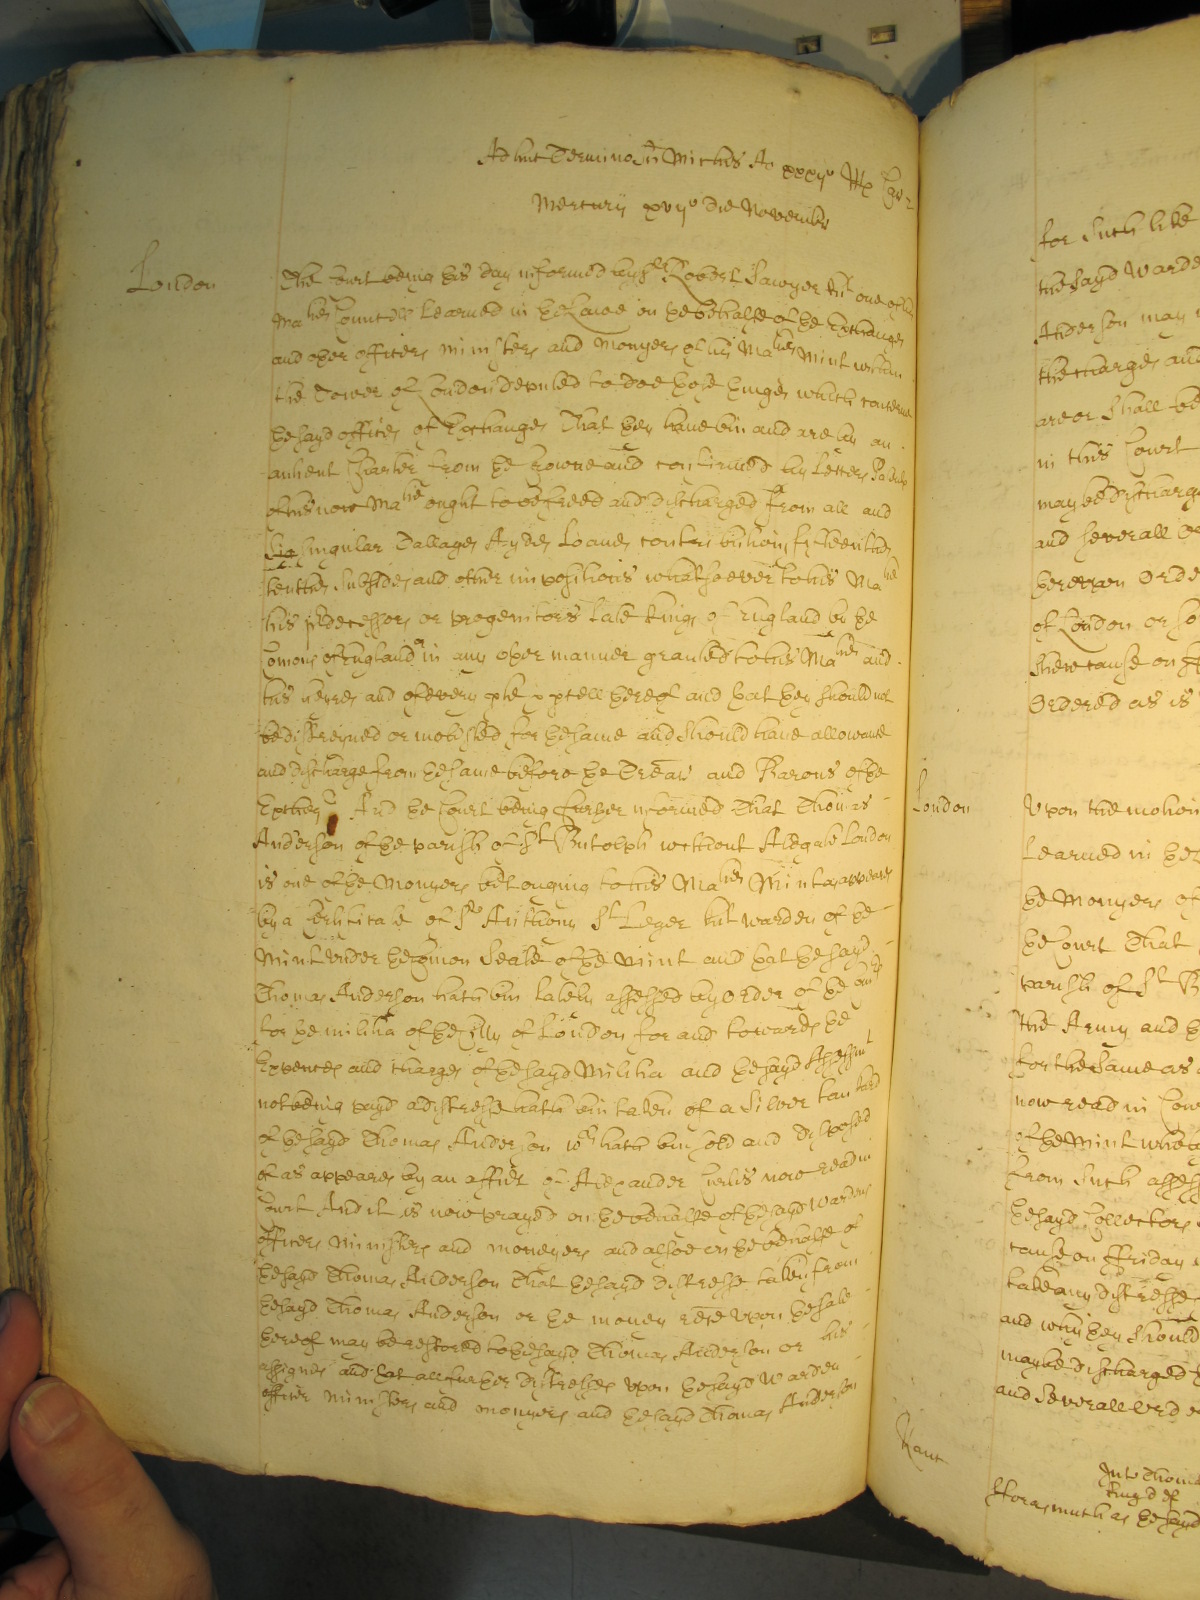 Adhuc Termino Sti Michis Ao xxxijo Rx
Mercurij xvijo die Novembr
London
The Court being this day informed by Sr Robert Sawyer knt one of his
Maties Councell Learned in the Lawe on the behalfe of the Exchanges
and other officers ministers and Monyers of his Maties Mint within
the Tower of London deputed to doe those things which concerne
the sayd offices of Exchanges That they have bin and are by an
antient Charter from the Crowne and confirmed by Letters Patents
of his now Matie ought to be freed and discharged from all and
singular Tallages Aydes Loanes contribucions fifteenthes
tenthes Subsides and other imposicions whatsoever to his Matie
his pdecessors or progenitors late Kings of England by the
Comons of England or in any other manner granted to his Matie and
his heyres and of every pte & pcell thereof and that they should not
be distreyned or molested for the same and should have allowance
and discharge from the same before the Trear and Barons of the
Excheqr And the Court being further informed That Thomas
Anderson of the parish of St Buttolph without Aldgate London
is one of the Monyers belonging to his Maties Mint as appeares
by a Certificate of Sr Anthony St Leger knt warden of the
Mint under the comon Seale of the Mint and that the sayd
Thomas Anderson hath bin lately assessed by order of the
for the militia of the Citty of London for and towards the
Expences and charges of the sayd Militia and the sayd Assessmt
not being payd a distresse hath bin taken of a Silver tankard
of the sayd Thomas Anderson wch hath bin sold and disposed
of as appeares by an affidt of Alexander Curtis now read in
Court And it is now prayd on the behalfe of the sayd wardens
officers Ministers and moneyers and alsoe on the behalfe of
the sayd Thomas Anderson That the sayd distresse taken from
the sayd Thomas Anderson or the money recd upon the sale
thereof may be restored to the sayd Thomas Anderson or his
assignes and that all further distresses upon the sayd Warden
officers ministers and monyers and the sayd Thomas Anderson
for such like
the sayd Warde
Anderson may
the charges and
are or shall be
in this Court
may be discharg
and severall
thereupon Orde
of London or so
shew cause on
Ordered as is
London
Upon the mocion
Learned in the
the Monyers of
the Court That
parish of St B
the Army and
for the same as
now read in Cou
of the Mint
from such assess
the sayd Collectors
cause on Friday
take any distresse
and why they should
may be discharged
and severall
Kanc
Int Thom
for as much as the sayd